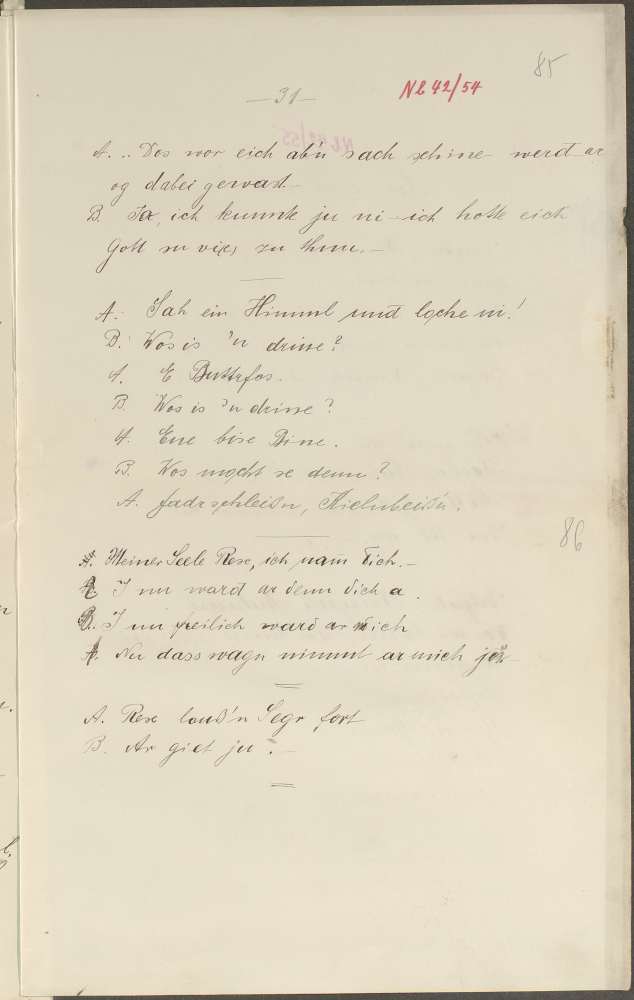 85
— 31 —
Nl 42/54
A. .. Dos wor eich ab'n sach schine werd ar
og dabei gewast
B. Ja, ich kunnte ju ni – ich hotte eich
Gott su viel zu thun. –
A. Sah ein Himml und loche ni!
B. Wos is 'n drine?
A. E Buttrfos.
B. Wos is 'n drine?
A. Ene bise Bine.
B. Wos mocht se denn?
A. Fadrschleissn, Kielnbeissn.
86
A. Meiner Seele Rese, ich nam dich. –
B. I nu ward ar denn dich a.
B. I nu freilich ward ar mich
A. Nu dass wagn nimmt ar mich
A. Rese louss'n Segr fort
B. Ar giet ju. –